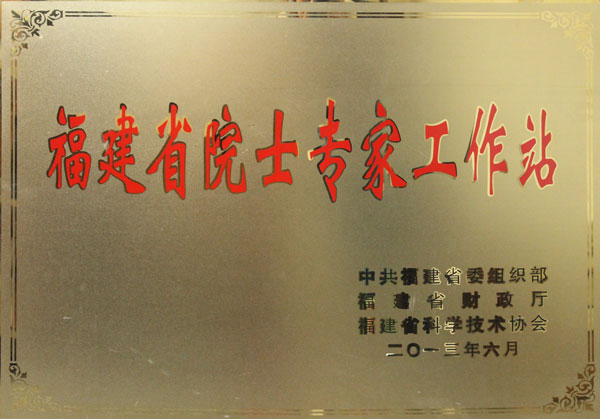 福建省院士专家工作站
中共福建省委组织部
福建省财政厅
福建省科学技术协会
二〇一三年六月